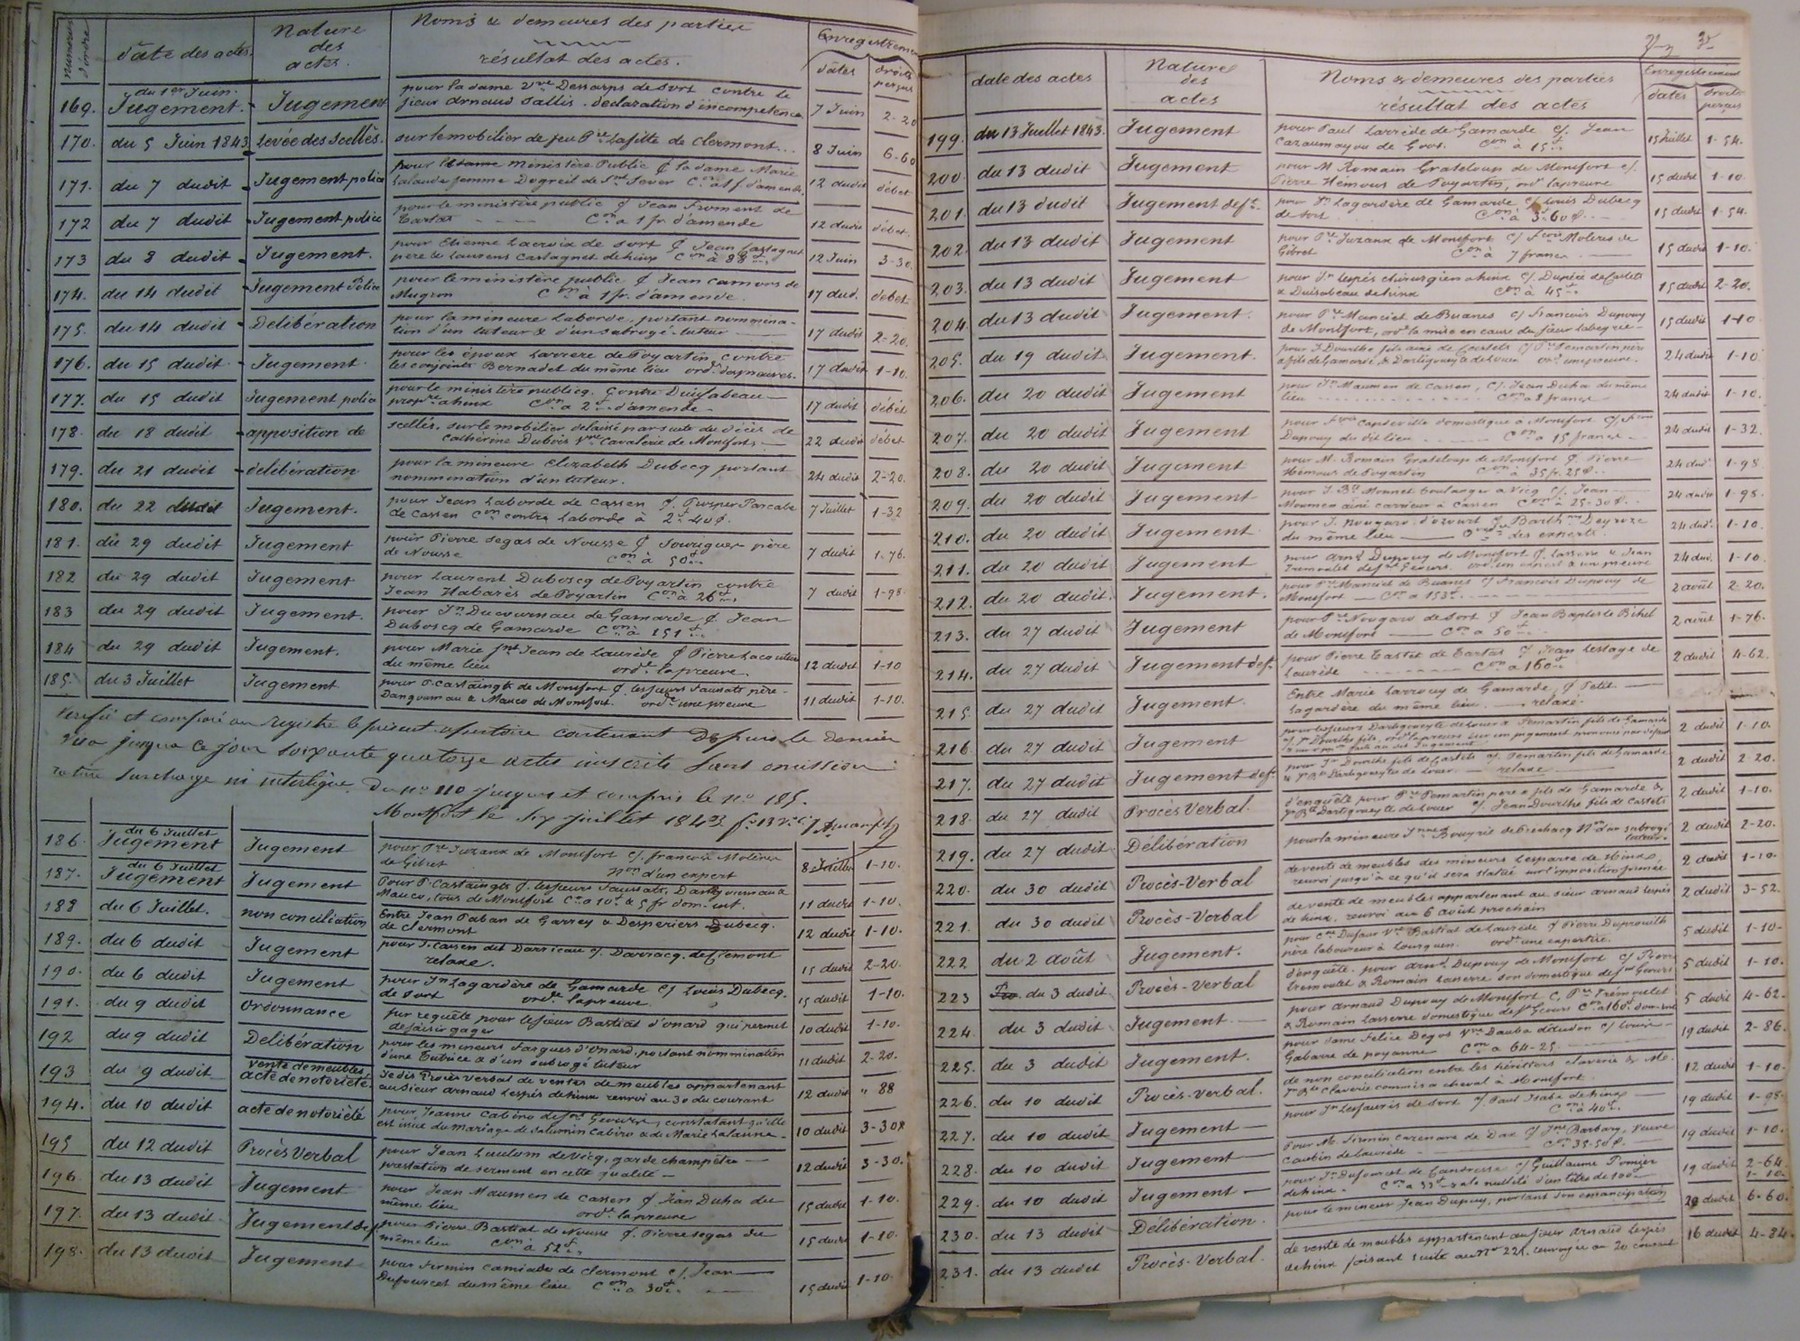 numéros d'ordre
date des actes.
Nature des actes.
Noms & demeures des parties
résultat des actes.
Enregistrement
dates
droits perçus
169. du 1er Juin. Jugement. Jugement pour la dame Vve Dessarps de Sort contre le
sieur Arnaud Sallis. déclaration d'incompétence 7 Juin 2-20
170. du 5 Juin 1843 Levée des Scellés. sur le mobilier de feu Pre Lafitte de Clermont... 8 Juin 6-60
171. du 7 dudit Jugement police pour le Ministère Public C/ la dame Marie
Lalaude femme Degreil de St Sever Con à 1 f. d'amende. 12 dudit débet
172 du 7 dudit Jugement police pour le ministère public C/ Jean Froment de
Tartas Con à 1 fr. d'amende 12 dudit débet.
173 du 8 dudit Jugement. pour Etienne Lacroix de Sort C/ Jean Castagnet
père de Laurens Castagnet de hinx Con à 88 12 Juin 3-30
174. du 14 dudit Jugement Police pour le ministère public C/ Jean Camors de
Mugron Con à 1 fr. d'amende. 17 dud. débet.
175. du 14 dudit Délibération pour la mineure Laborde, portant nomina-
tion d'un tuteur & d'un subrogé-tuteur 17 dudit 2-20.
176. du 15 dudit Jugement. pour les époux Larrere de Poyartin contre
les conjoints Bernadet du même lieu ord. des preuves. 17 dudit 1-10.
177. du 15 dudit Jugement police pour le ministère public, Contre Duisabeau
propre à hinx Con à 2 d'amende 17 dudit débet
178. du 18 dudit apposition de scellés, sur le mobilier delaissé par suite du décès de
Catherine Dubois Vve Cavalerie de Montfort, 22 dudit débet.
179. du 21 dudit délibération pour la mineure Elizabeth Dubecq portant
nomination d'un tuteur. 24 dudit 2-20.
180. du 22 dudit Jugement. pour Jean Laborde de Cassen C/ Prosper Pascale
de Cassen Con contre Laborde à 2 40 7 Juillet 1-32
181. du 29 dudit Jugement pour Pierre Segas de Nousse C/ Touriguer père
de Nousse Con à 50 7 dudit 1-76.
182 du 29 dudit Jugement pour Laurent Duboscq de Poyartin contre
Jean Habarès de Poyartin Con à 26 7 dudit 1-98.
183 du 29 dudit Jugement. pour Jn Ducournau de Gamarde C/ Jean
Duboscq de Gamarde Con à 151
184 du 29 dudit Jugement. pour Marie Jean de Laurède C/ Pierre Lacouture
du même lieu ord. la preuve. 12 dudit 1-10
185. du 3 Juillet Jugement pour P. Castaingts de Montfort C/ les sieurs Saussats père
Dangoumau & Mauco de Montfort. ord. une preuve 11 dudit 1-10.
Vérifié et comparé au registre le présent répertoire contenant depuis le dernier
visa jusqu'à ce jour soixante quatorze actes inscrits sans omission
rature surcharge ni interligne. Du no 110 jusques et compris le no 185.
Montfort le six Juillet 1843
186. du 6 Juillet Jugement Jugement pour Pre Juzanx de Montfort C/ françois Molères
de Gibret Non d'un expert 8 Juillet 1-10.
187. du 6 Juillet Jugement Jugement Pour P. Castaingts C/ les sieurs Saussats, Dangoumau &
Mauco, tous de Montfort Con à 10 & 5 fr dom. int. 11 dudit 1-10.
188 du 6 Juillet. non conciliation Entre Jean Taban de Garrey & Desperiers Dubecq.
de Clermont 12 dudit 1-10.
189. du 6 dudit Jugement pour J. Cassen dit Darricau C/ Darracq. de Clermont
relaxe. 15 dudit 2-20
190. du 6 dudit Jugement pour Jn Lagardère de Gamarde C/ Louis Dubecq.
de Sort ord. la preuve 15 dudit 1-10.
191. du 9 dudit Ordonnance sur requête pour le sieur Bastiat d'onard qui permet
de saisir gager 10 dudit 1-10.
192 du 9 dudit Délibération pour les mineurs Fargues d'Onard, portant nomination
d'une Tutrice & d'un subrogé tuteur 11 dudit 2-20.
193 du 9 dudit vente de meubles, acte de notoriété Je dis Procès verbal de ventes de meubles appartenant
au Sieur Arnaud Lespès de hinx renvoi au 30 du courant 12 dudit " 88
194. du 10 dudit acte de notoriété pour Jeanne Cabiro de St Geours, constatant qu'elle
est issue du Mariage de Salumin Cabiro & de Marie Lalanne 10 dudit 3-30
195 du 12 dudit Procès Verbal pour Jean Luculom de Vicq, garde champêtre
prestation de serment en cette qualité 12 dudit 3-30.
196. du 13 dudit Jugement pour Jean Maumen de Cassen C/ Jean Duha du
même lieu ord. la preuve 15 dudit 1-10.
197. du 13 dudit Jugement def. pour Pierre Bastiat de Nousse C/ Pierre Segas du
même lieu Con à 52 15 dudit 1-10.
198. du 13 dudit Jugement pour Firmin Camiade de Clermont C/ Jean
Dufourcet du même lieu Con à 30 15 dudit 1-10
date des actes
Nature des actes
Noms & demeures des parties
résultat des actes
Enregistrement
dates
droits perçus
199. du 13 Juillet 1843. Jugement pour Paul Larrède de Gamarde C/ Jean
Cazaumayou de Goos. Con à 15 15 Juillet 1-54.
200 du 13 dudit Jugement pour M. Romain Grateloup de Montfort C/
Pierre Hémous de Poyartin, ord. la preuve 15 dudit 1-10.
201. du 13 dudit Jugement deft. pour Jn Lagardère de Gamarde C/ Louis Dubecq
de Sort Con à 3 60 15 dudit 1-54.
202. du 13 dudit Jugement pour Pre Juzanx de Montfort C/ Fcois Molères de
Gibret Con à 7 francs 15 dudit 1-10.
203. du 13 dudit Jugement pour Jn Lespès chirurgien à hinx C/ Dupiée de Castets
& Duisabeau de hinx Con à 45 15 dudit 2-20.
204. du 13 dudit Jugement. pour Pre Manciet de Buanes C/ François Dupouy
de Montfort, ord. la mise en cause du sieur Labeyrie 15 dudit 1-10
205. du 19 dudit Jugement. pour J. Dourthe fils ainé de Castets C/ Pre Pemartin père
& fils de Gamarde, & Dartigueyte de Louer ord. une preuve. 24 dudit 1-10
206. du 20 dudit Jugement pour Jn Maumen de Cassen, C/ Jean Duha du même
lieu Con à 8 francs 24 dudit 1-10.
207. du 20 dudit Jugement pour Fcois Capdeville domestique à Montfort C/ Fcois
Dupouy du dit lieu Con à 15 francs 24 dudit 1-32.
208. du 20 dudit Jugement pour M. Romain Grateloup de Montfort C/ Pierre
Hémous de Poyartin Con à 35 fr. 25 24 dud. 1-98
209. du 20 dudit Jugement pour J. Bte Monnet boulanger à Vicq C/ Jean
Moumen ainé carrieur à Cassen Con à 25-30 24 dudit 1-98.
210. du 20 dudit Jugement pour J. Nougaro d'ozourt C/ Barthmy Deyroze
du même lieu des experts. 24 dud. 1-10.
211. du 20 dudit Jugement pour Arnd Dupouy de Montfort C/ Lasserre & Jean
Tremoulet de St Geours. ord. un expert & une preuve 24 dud. 1-10.
212. du 20 dudit. Jugement. pour Pre Manciet de Buanes C/ François Dupouy de
Montfort Con à 153 2 août 2-20.
213. du 27 dudit Jugement pour Pre Nougaro de Sort C/ Jean Baptiste Bihel
de Montfort Con à 50 2 août 1-76.
214. du 27 dudit Jugement def. pour Pierre Tastet de Tartas C/ Jean Lestage de
Laurède Con à 160 2 dudit 4-62.
215. du 27 dudit Jugement Entre Marie Larrouy de Gamarde, C/ Petit
Lagardère du même lieu. relaxe.
216 du 27 dudit Jugement 2 dudit 1-10.
217. du 27 dudit Jugement def. pour Jn Dourthe fils de Castets C/ Pemartin fils de Gamarde
& Jn Bte Dartigueyte de Louer. relaxe 2 dudit 2 20.
218. du 27 dudit Procès Verbal. d'enquête pour Pre Pemartin père & fils de Gamarde &
Jn Bte Dartigueyte de Louer C/ Jean Dourthe fils de Castets 2 dudit 1-10.
219. du 27 dudit Délibération pour la mineure Bouyrie de Préchacq Non d'un subrogé
tuteur 2 dudit 2-20.
220. du 30 dudit Procès-Verbal de vente de meubles des mineurs Lesparre de Hinx,
renvoi jusqu'à ce qu'il sera statué sur l'opposition formée 2 dudit 1-10.
221. du 30 dudit Procès-Verbal de vente de meubles appartenant au sieur Arnaud Lespès
de hinx. renvoi au 6 août prochain 2 dudit 3-52.
222 du 2 août Jugement. pour Dufaur Vve Bastiat de Laurède C/ Pierre Duprouilh
père laboureur à Lourquen. ord. une expertise. 5 dudit 1-10-
223 du 3 dudit Procès-Verbal d'enquête. pour Arnd Dupouy de Montfort C/ Pierre
Tremoulet & Romain Lasserre son domestique de St Geours 5 dudit 1-10.
224. du 3 dudit Jugement. pour Arnaud Dupouy de Montfort C. Pre Trémoulet
& Romain Lasserre domestique de St Geours Con à 160 5 dudit 4-62.
225. du 3 dudit Jugement. pour dame Félice Degos Vve Dauba d'oudon C/ Louis
Gabarre de poyanne Con à 64-25 19 dudit 2-86.
226. du 10 dudit Procès-Verbal. de non conciliation entre les héritiers Claverie & Me
Jn Bte Claverie commis à cheval à Montfort. 12 dudit 1-10.
227. du 10 dudit Jugement pour Jn Lesfauris de Sort C/ Paul Isaba de hinx
Con à 40 19 dudit 1-98.
228. du 10 dudit Jugement pour M. Firmin Carenave de Dax C/ Barbary, veuve
Caubin de Laurède Con 35-50 19 dudit 1-10.
229. du 10 dudit Jugement pour Jn Dufourcet de Candresse C/ Guillaume Pomier
de hinx. Con à 33 & la nullité d'un titre de 100 19 dudit 2-64. 1-10
230. du 13 dudit Délibération. pour le mineur Jean Dupuy, portant son émancipation 28 dudit 6-60.
231. du 13 dudit Procès-Verbal. de vente de meubles appartenant au sieur Arnaud Lespès
de hinx faisant suite au No 221, renvoyée au 20 courant 16 dudit 4-84.